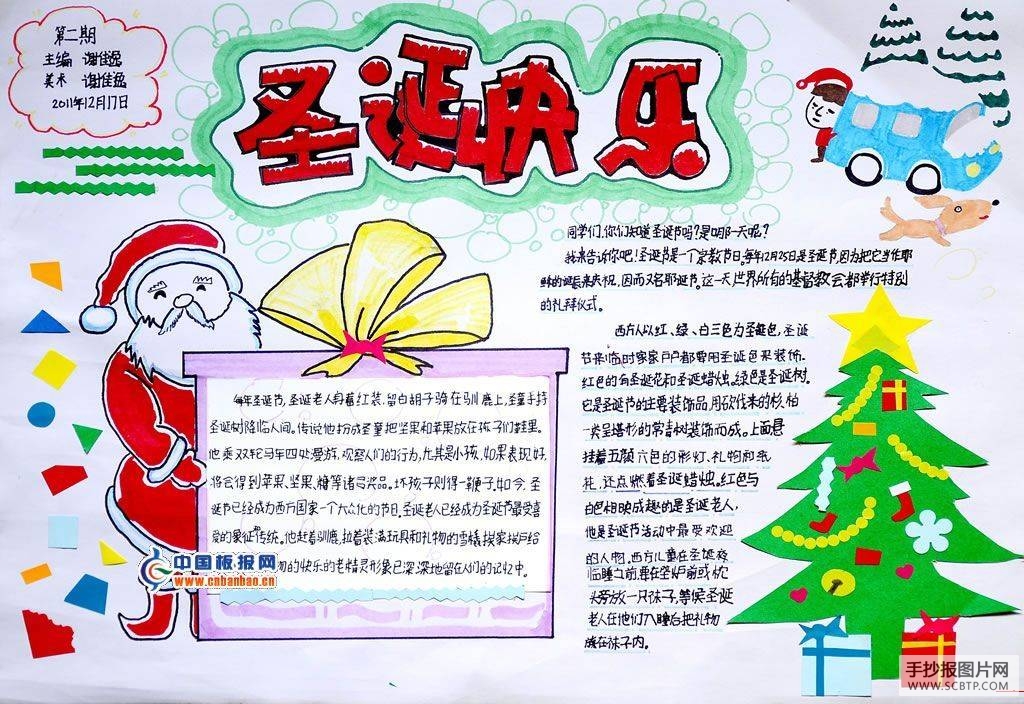 第二期
主编 谢佳逸
美术 谢佳逸
2011年12月17日
圣诞快乐
同学们,你们知道圣诞节吗?是哪一天呢?
我来告诉你吧!圣诞节是一个宗教节日,每年12月25日是圣诞节,因为把它当作耶
稣的诞辰来庆祝,因而又名耶诞节。这一天世界所有的基督教会都举行特别
的礼拜仪式。
西方人以红、绿、白三色为圣诞色,圣诞
节来临时家家户户都要用圣诞色来装饰。
红色的有圣诞花和圣诞蜡烛。绿色是圣诞树。
它是圣诞节的主要装饰品,用砍伐来的杉、柏
一类呈塔形的常青树装饰而成。上面悬
挂着五颜六色的彩灯、礼物和纸
花,还点燃着圣诞蜡烛。红色与
白色相映成趣的是圣诞老人,
他是圣诞节活动中最受欢迎
的人物。西方儿童在圣诞夜
临睡之前,要在壁炉前或枕
头旁放一只袜子,等候圣诞
老人在他们入睡后把礼物
放在袜子内。
每年圣诞节,圣诞老人身着红装、留白胡子骑在驯鹿上,圣童手持
圣诞树降临人间。传说他扮成圣童把坚果和苹果放在孩子们鞋里。
他乘双轮马车四处漫游,观察人们的行为,尤其是小孩,如果表现好,
将会得到苹果、坚果、糖等诸多奖品。坏孩子则得一鞭子。如今,圣
诞节已经成为西方国家一个大众化的节日。圣诞老人已经成为圣诞节最受喜
爱的象征传统。他赶着驯鹿,拉着装满玩具和礼物的雪橇挨家挨户给
物的快乐的老精灵形象已深深地留在人们的记忆中。
中国板报网
www.cnbanbao.cn
手抄报图片网
WWW.SCBTP.COM